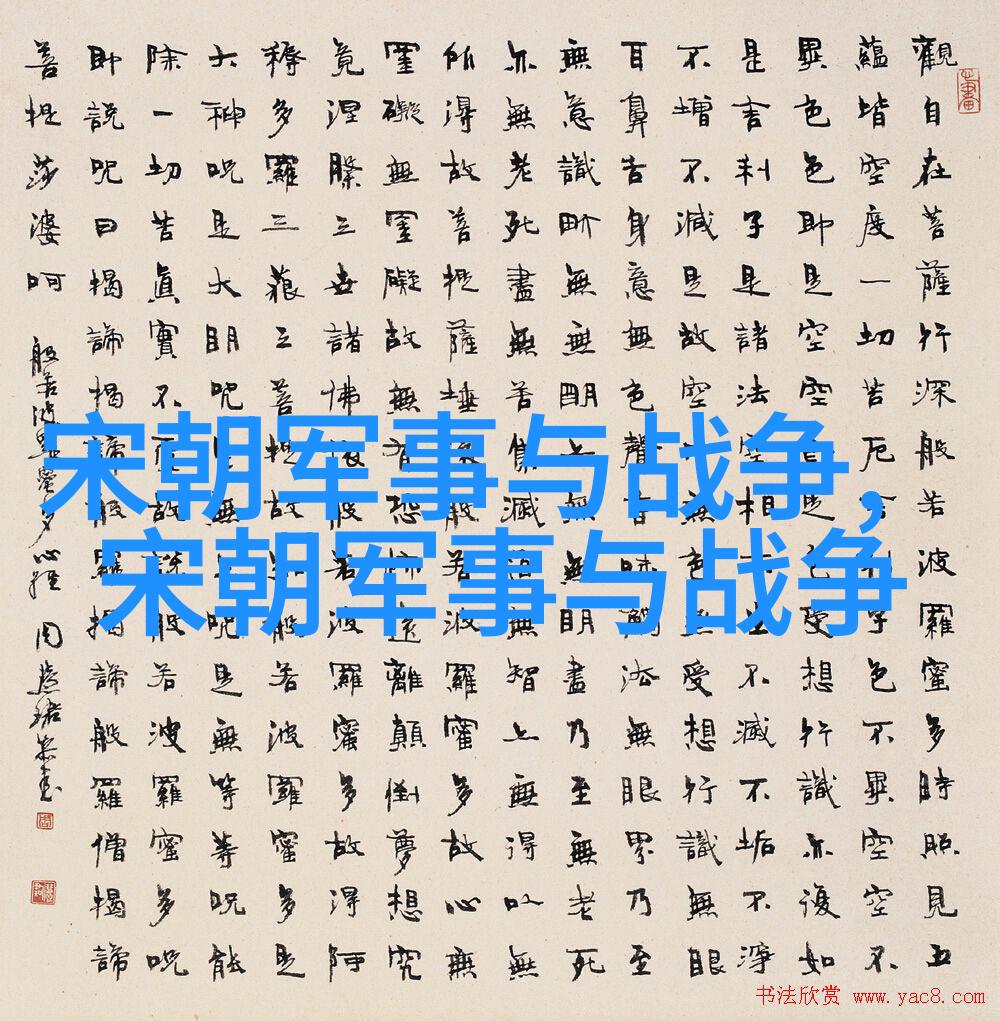 宋朝军事与战争,
宋朝军事与战争
觀自在菩薩行深般若波羅蜜多時照見五
蘊皆空度一切苦厄舍利子色不異空空不
異色色即是空空即是色受想行識亦復如
是舍利子是諸法空相不生不滅不垢不淨
不增不減是故空中無色無受想行識無眼
耳鼻舌身意無色聲香味觸法無眼界乃至
無意識界無無明亦無無明盡乃至無老死
亦無老死盡無苦集滅道無智亦無得以無
所得故菩提薩埵依般若波羅蜜多故心無
罣礙無罣礙故無有恐怖遠離顛倒夢想究
竟涅槃三世諸佛依般若波羅蜜多故得阿
耨多羅三藐三菩提故知般若波羅蜜多是
大神呪是大明呪是無上呪是無等等呪能
除一切苦眞實不虛故說般若波羅蜜多呪
即說呪曰揭諦揭諦般羅揭諦般羅僧揭諦
菩提莎婆呵
般若波羅蜜多心經 周
书法欣赏 www.yac8.com